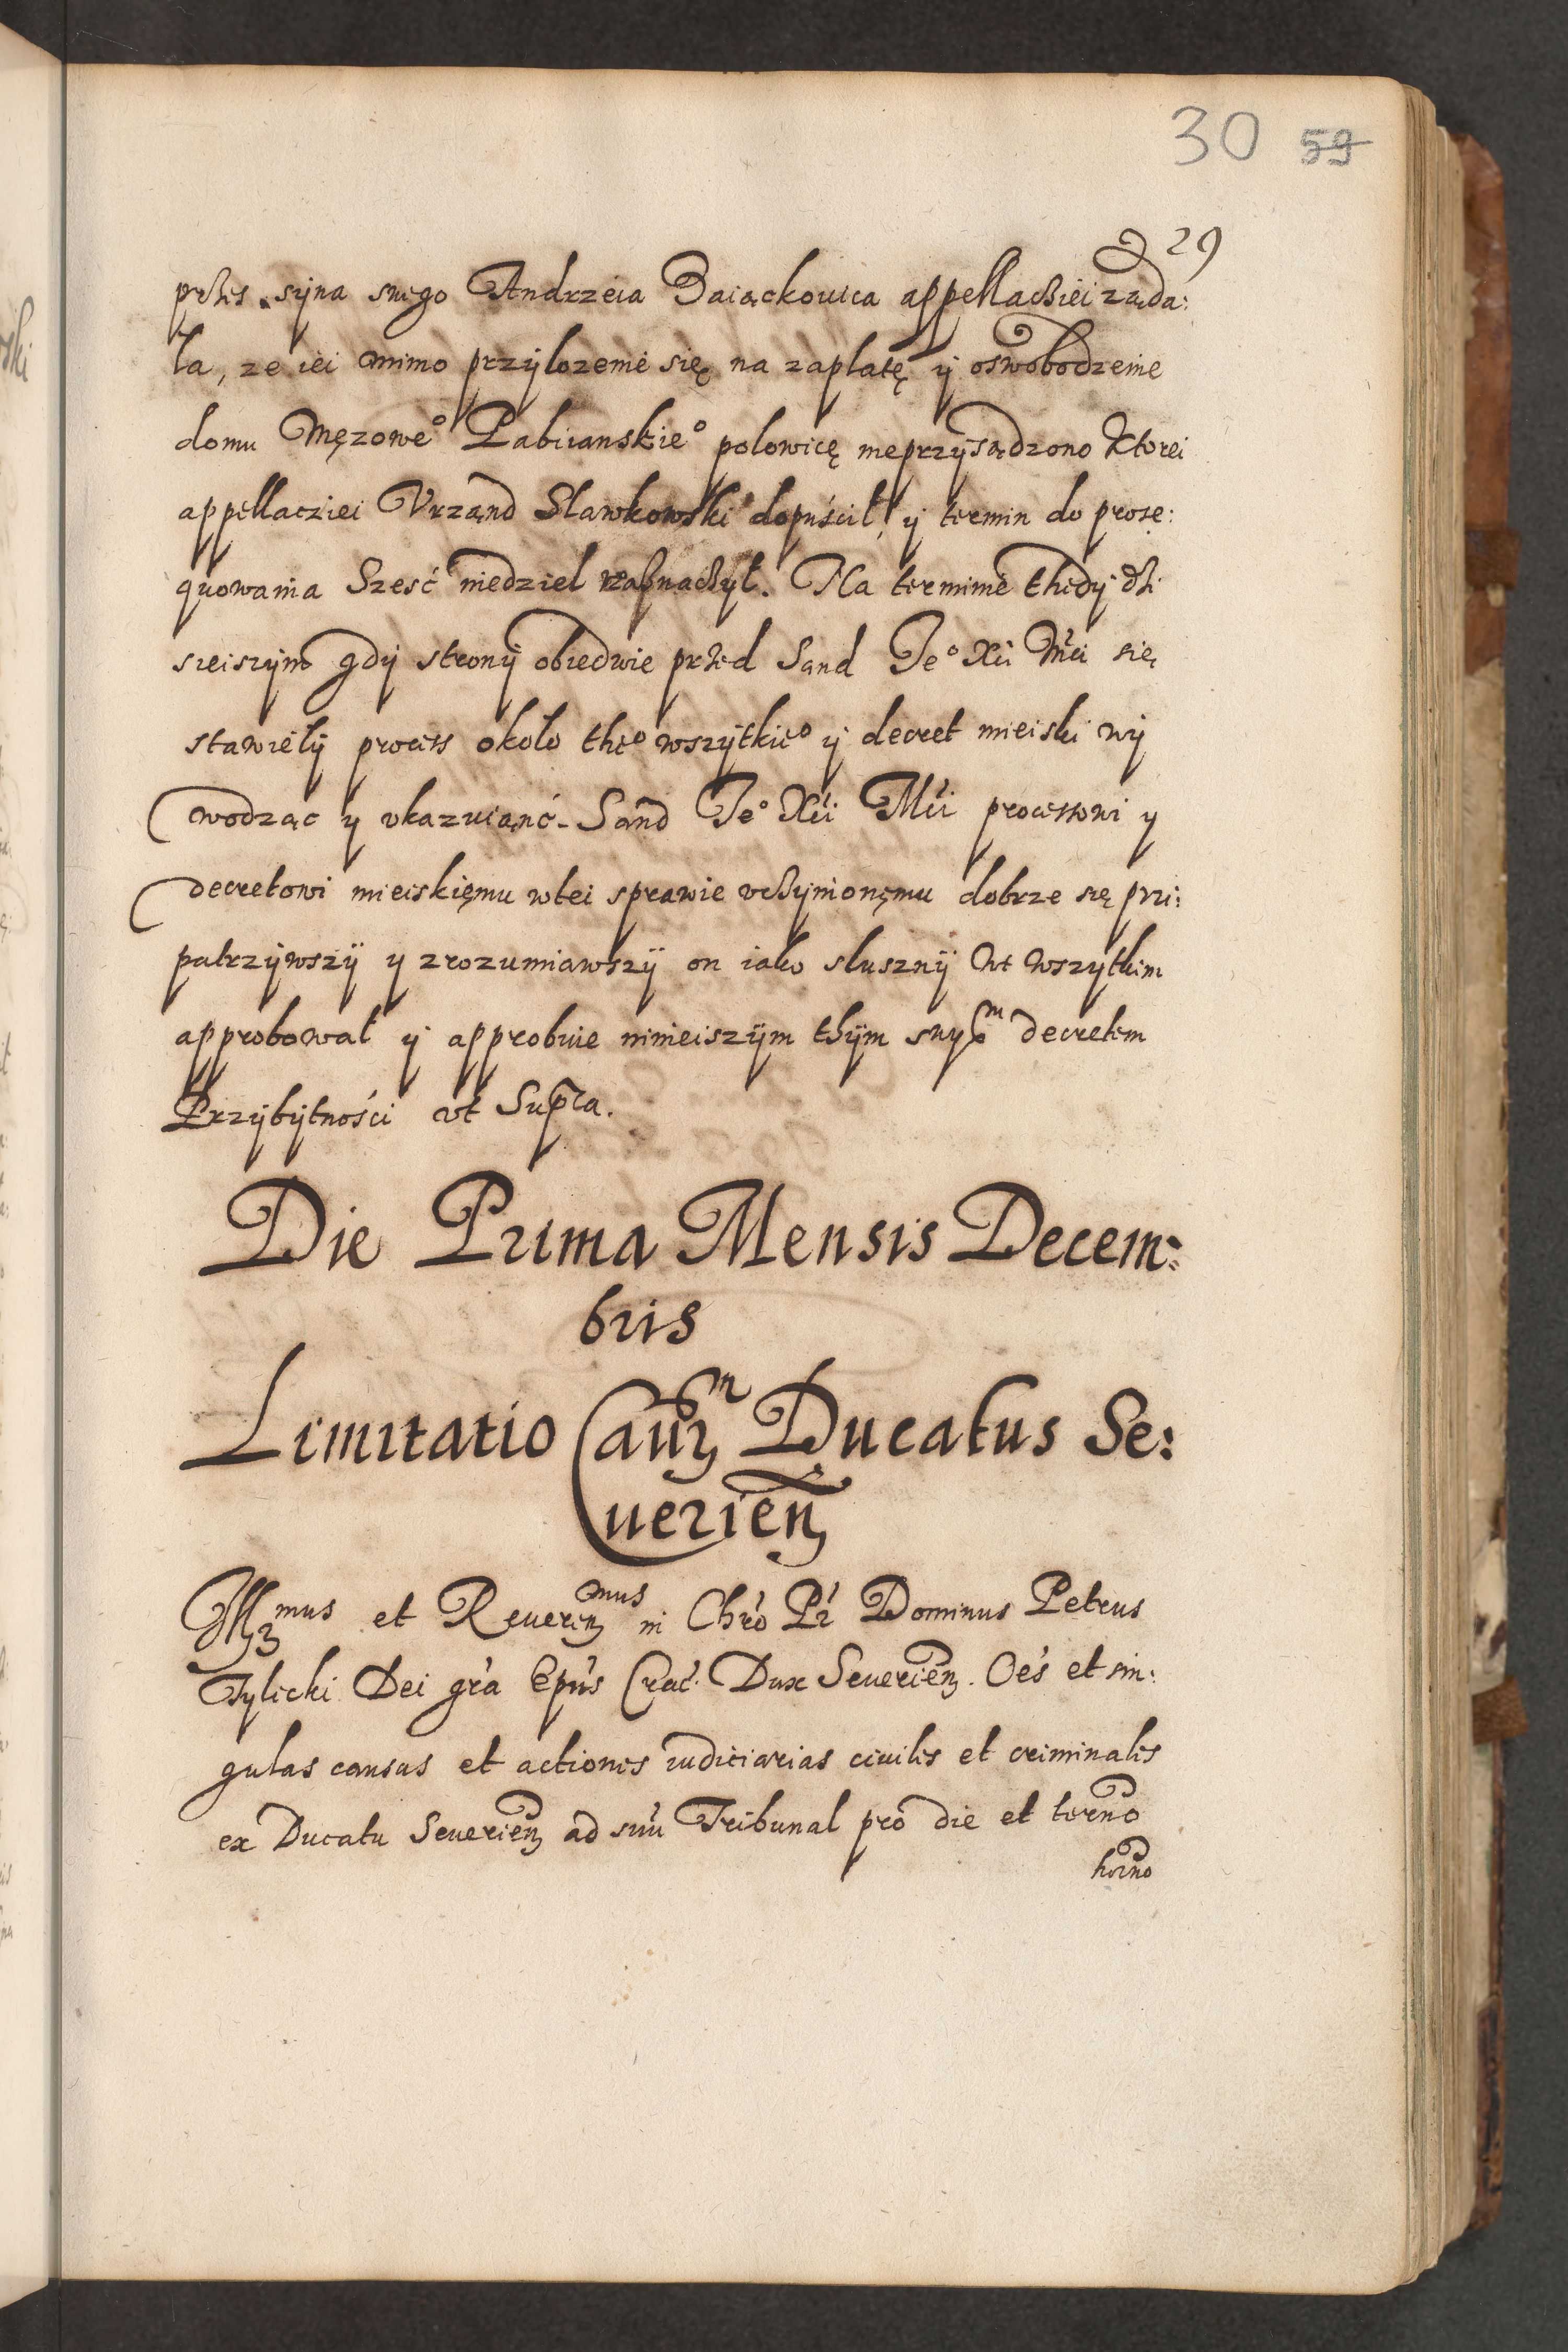 30 59
29
przes syna swego Andrzeia Baiączkowica appellacziei ząda:
la, ze iei mimo przylozenie się na zaplatę y oswobodzenie
domu Męzowe° Pabiianskie° polowicę nieprzysądzono ktorei
appellacziei Vrzand Slawkowski dopuścił, y termin do prose:
quowania Sześć niedziel naznaczył. Na terminie thedy dzi
sieiszym gdy strony obiedwie przed Sand Je° Xći Mći się
stawiely process około the° wszytkie° y decret mieiski wy
wodząc y vkazuianć. Sand Je° Xći Mći processowi y
decretowi mieiskięmu wtei sprawie vczynionęmu dobrze się pri:
patrzywszy y zrozumiawszy on iako sluszny we wszytkim
approbował y approbuie ninieiszym thym swym decretem
Przybytności vt Supra.
Die Prima Mensis Decem:
bris
Limitatio Cauʒm Ducatus Se:
uerieñ
Illmus et Reuerenmus in Chro Pr Dominus Petrus
Tylicki Dei gra Epus Crac. Dux Seuerieñ. Oes et sin:
gulas causas et actiones iudiciarias ciuiles et criminales
ex Ducatu Seuerieñ ad suu Tribunal pro die et terno
horno